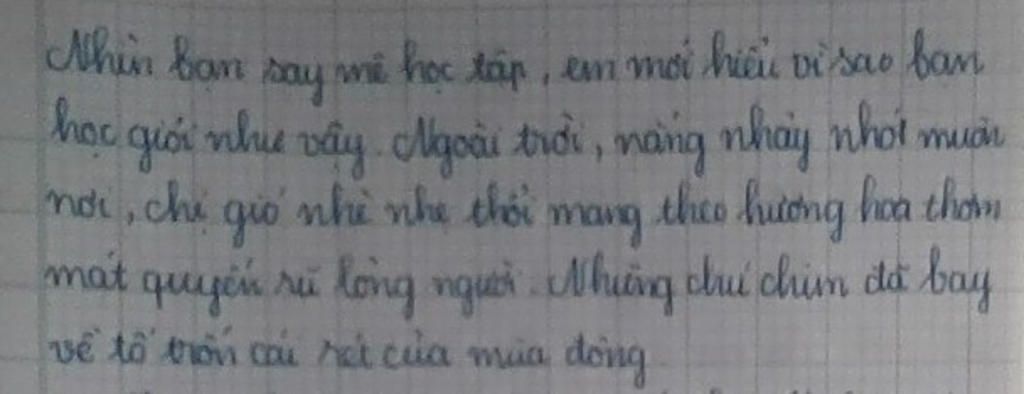 Nhìn bạn say mê học tập, em mới hiểu vì sao bạn
học giỏi như vậy. Ngoài trời, nắng nhảy nhót muôn
nơi, chị gió nhè nhẹ thổi mang theo hương hoa thơm
mát quyến rũ lòng người. Những chú chim đã bay
về tổ trốn cái rét của mùa đông